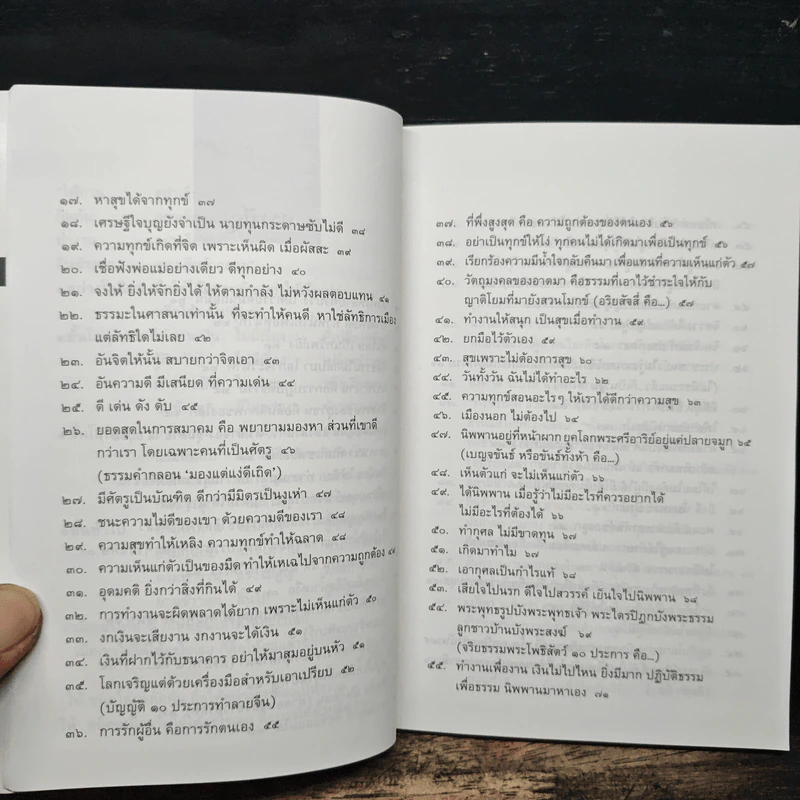 ๑๗. หาสุขได้จากทุกข์ ๓๗
๑๘. เศรษฐีใจบุญยังจำเป็น นายทุนกระดาษซับไม่ดี ๓๘
๑๙. ความทุกข์เกิดที่จิต เพราะเห็นผิด เมื่อผัสสะ ๓๙
๒๐. เชื่อฟังพ่อแม่อย่างเดียว ดีทุกอย่าง ๔๐
๒๑. จงให้ ยิ่งให้จักยิ่งได้ ให้ตามกำลัง ไม่หวังผลตอบแทน ๔๑
๒๒. ธรรมะในศาสนาเท่านั้น ที่จะทำให้คนดี หาใช่ลัทธิการเมือง
แต่ลัทธิใดไม่เลย ๔๒
๒๓. อันจิตให้นั้น สบายกว่าจิตเอา ๔๓
๒๔. อันความดี มีเสนียด ที่ความเด่น ๔๔
๒๕. ดี เด่น ดัง ดับ ๔๕
๒๖. ยอดสุดในการสมาคม คือ พยายามมองหา ส่วนที่เขาดี
กว่าเรา โดยเฉพาะคนที่เป็นศัตรู ๔๖
(ธรรมคำกลอน ‘มองแต่แง่ดีเถิด’)
๒๗. มีศัตรูเป็นบัณฑิต ดีกว่ามีมิตรเป็นงูเห่า ๔๗
๒๘. ชนะความไม่ดีของเขา ด้วยความดีของเรา ๔๘
๒๙. ความสุขทำให้เหลิง ความทุกข์ทำให้ฉลาด ๔๘
๓๐. ความเห็นแก่ตัวเป็นของมืด ทำให้เหเฉไปจากความถูกต้อง ๔๗
๓๑. อุดมคติ ยิ่งกว่าสิ่งที่กินได้ ๔๙
๓๒. การทำงานจะผิดพลาดได้ยาก เพราะไม่เห็นแก่ตัว ๕๐
๓๓. งกเงินจะเสียงาน งกงานจะได้เงิน ๕๑
๓๔. เงินที่ฝากไว้กับธนาคาร อย่าให้มาสุมอยู่บนหัว ๕๑
๓๕. โลกเจริญแต่ด้วยเครื่องมือสำหรับเอาเปรียบ ๕๒
(บัญญัติ ๑๐ ประการทำลายจีน)
๓๖. การรักผู้อื่น คือการรักตนเอง ๕๕
๓๗. ที่พึ่งสูงสุด คือ ความถูกต้องของตนเอง ๕๖
๓๘. อย่าเป็นทุกข์ให้โง่ ทุกคนไม่ได้เกิดมาเพื่อเป็นทุกข์ ๕๖
๓๙. เรียกร้องความมีน้ำใจกลับคืนมา เพื่อแทนที่ความเห็นแก่ตัว ๕๗
๔๐. วัตถุมงคลของอาตมา คือธรรมที่เอาไว้ชำระใจให้กับ
ญาติโยมที่มายังสวนโมกข์ (อริยสัจสี่ คือ...) ๕๗
๔๑. ทำงานให้สนุก เป็นสุขเมื่อทำงาน ๕๙
๔๒. ยกมือไว้ตัวเอง ๕๙
๔๓. สุขเพราะไม่ต้องการสุข ๖๐
๔๔. วันทั้งวัน ฉันไม่ได้ทำอะไร ๖๒
๔๕. ความทุกข์สอนอะไรๆ ให้เราได้ดีกว่าความสุข ๖๓
๔๖. เมืองนอก ไม่ต้องไป ๖๔
๔๗. นิพพานอยู่ที่หน้าผาก ยุคโลกพระศรีอาริย์อยู่แค่ปลายจมูก ๖๕
(เบญจขันธ์ หรือขันธ์ทั้งห้า คือ...)
๔๘. เห็นตัวแก่ จะไม่เห็นแก่ตัว ๖๖
๔๙. ได้นิพพาน เมื่อรู้ว่าไม่มีอะไรที่ควรอยากได้
ไม่มีอะไรที่ต้องได้ ๖๖
๕๐. ทำกุศล ไม่มีขาดทุน ๖๗
๕๑. เกิดมาทำไม ๖๗
๕๒. เอากุศลเป็นกำไรแท้ ๖๘
๕๓. เสียใจไปนรก ดีใจไปสวรรค์ เย็นใจไปนิพพาน ๖๘
๕๔. พระพุทธรูปบังพระพุทธเจ้า พระไตรปิฎกบังพระธรรม
ลูกชาวบ้านบังพระสงฆ์ ๖๙
(จริยธรรมพระโพธิสัตว์ ๑๐ ประการ คือ...)
๕๕. ทำงานเพื่องาน เงินไม่ไปไหน ยิ่งมีมาก ปฏิบัติธรรม
เพื่อธรรม นิพพานมาหาเอง ๗๑